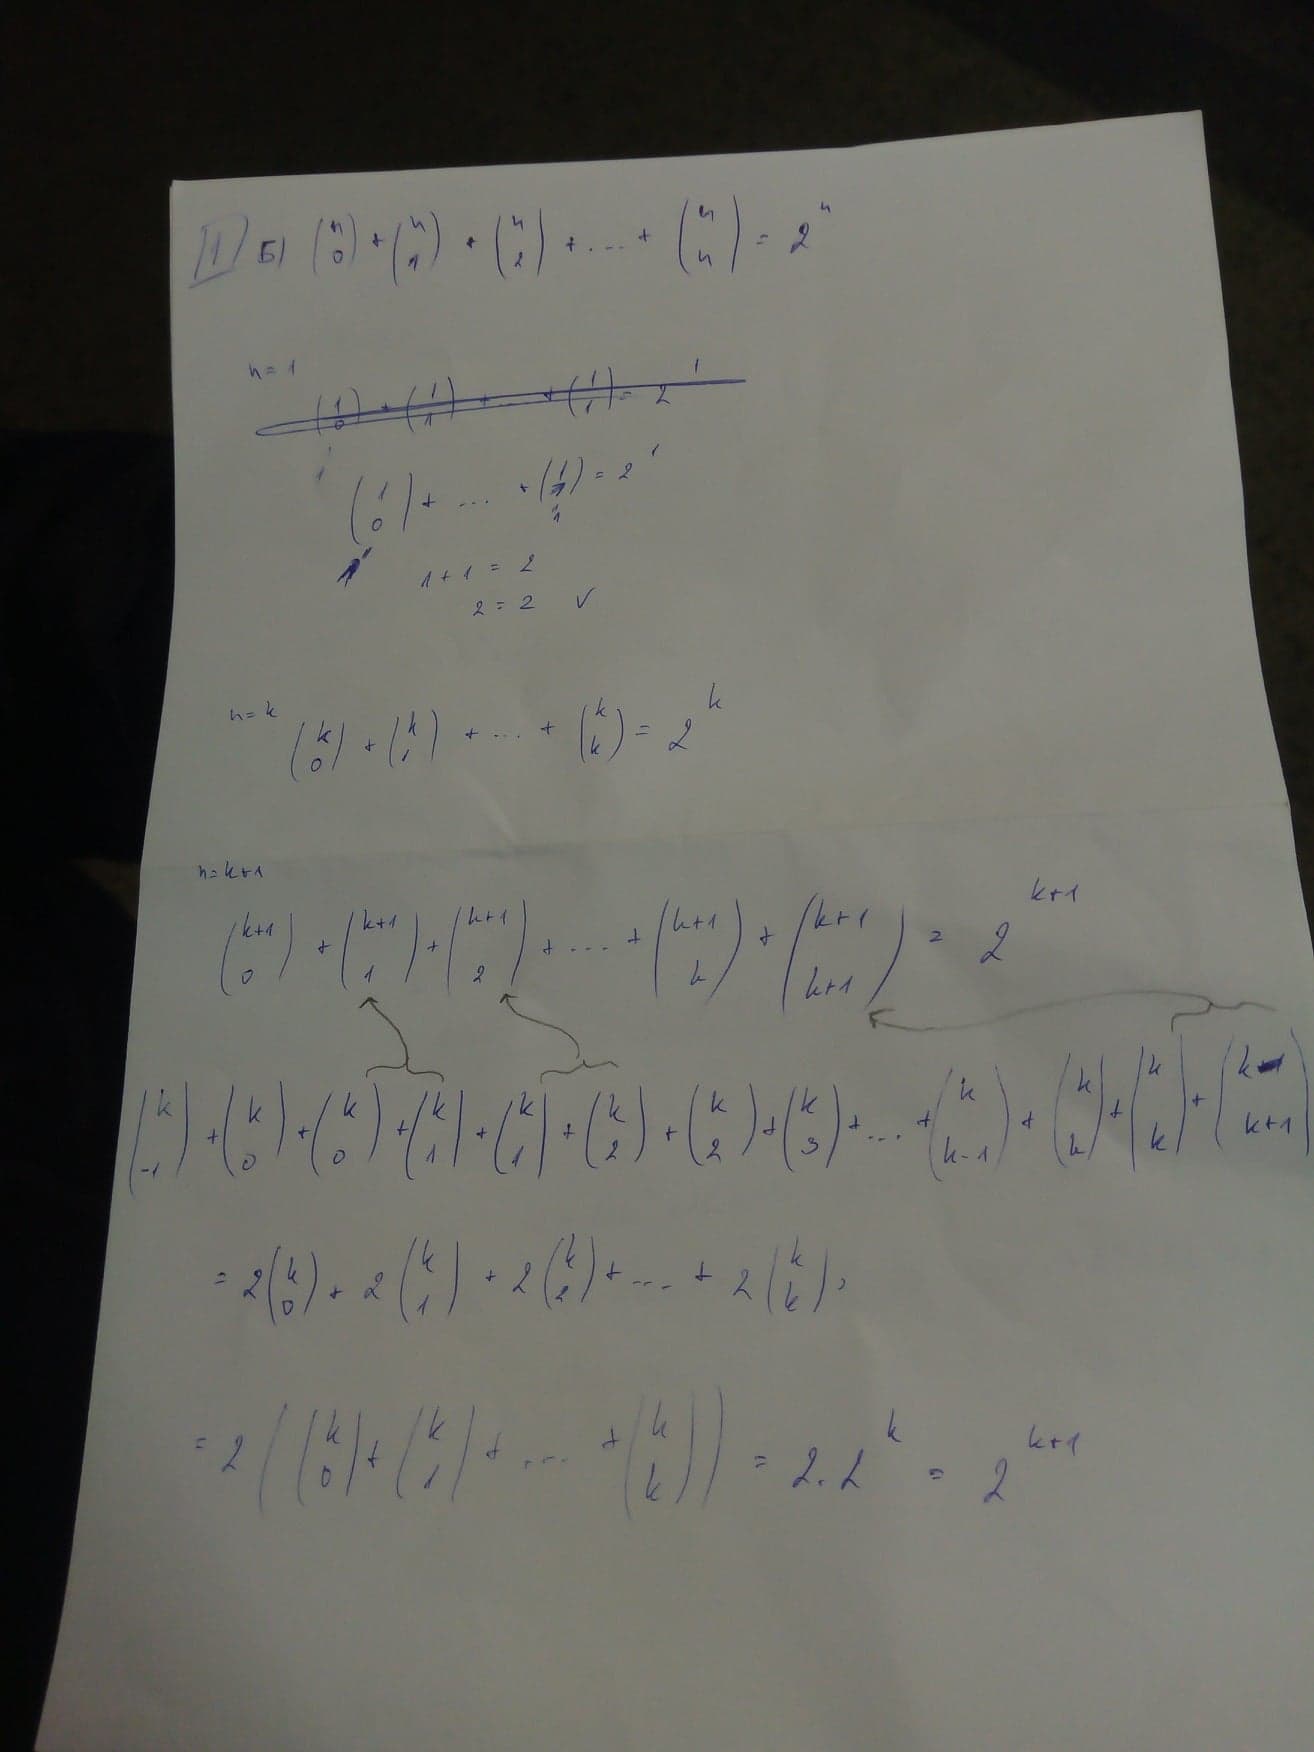 1 Б) (n 0) + (n 1) + (n 2) + .... + (n n) = 2^n
n=1
(1 0) + (1 1) + ... + (1 1) = 2^1
(1 0) + ... + (1 1) = 2^1
1 1
1+1 = 2
2 = 2 ✓
n=k
(k 0) + (k 1) + .... + (k k) = 2^k
n=k+1
(k+1 0) + (k+1 1) + (k+1 2) + .... + (k+1 k) + (k+1 k+1) = 2^k+1
(k -1) + (k 0) + (k 0) + (k 1) + (k 1) + (k 2) + (k 2) + (k 3) + .... + (k k-1) + (k k) + (k k) + (k k+1)
= 2(k 0) + 2(k 1) + 2(k 2) + .... + 2(k k) =
= 2((k 0) + (k 1) + .... + (k k)) = 2.2^k = 2^k+1